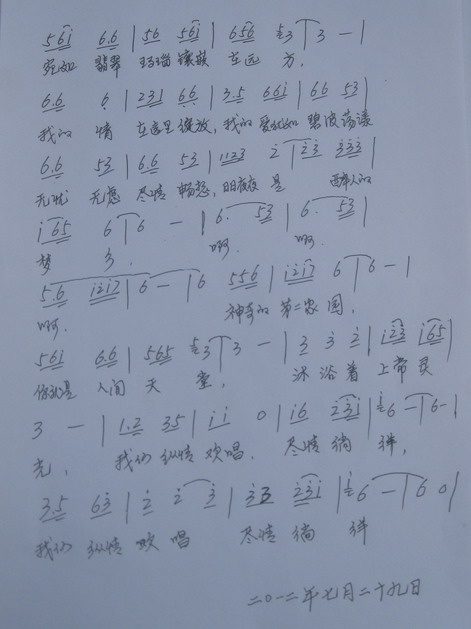 561 6.6 | 56 561 | 656 3 | 3 — |
宛如 翡翠 玛瑙 镶嵌 在远 方,
6.6 6 | 231 66 | 3.5 661 | 66 53 |
我的 情 在这里绽放, 我的 爱犹如 碧波荡漾
6.6 53 | 6.6 53 | 1123 2 | 23 333 |
无忧 无虑 尽情 畅想, 日夜夜 是 醉人的
165 6 | 6 — | 6. 53 | 6. 53 |
梦 乡, 啊. 啊.
5.6 1217 | 6 — | 6 556 | 1217 6 | 6 — |
啊. 神奇的 第二家 园,
561 6.6 | 565 3 | 3 — | 3 3 2 | 123 165 |
你就是 人间 天 堂, 沐浴着 上常灵
3 — | 1.2 35 | 11 0 | 16 231 | 6 — | 6 — |
光, 我们 纵情 欢唱, 尽情 徜 徉,
3.5 63 | 2 2 3 | 33 231 | 6 — | 6 0 |
我们 纵情 欢 唱 尽情 徜 徉
二〇一二年七月二十九日